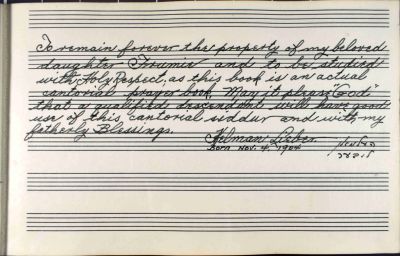 To remain forever the property of my beloved
daughter Frumie and to be studied
with Holy Respect, as this book is an actual
cantorial prayer book. May it please "God"
that a qualified descendant will have good
use of this cantorial siddur and with my
fatherly Blessings.
Helman Lieber
Born Nov. 4, 1904